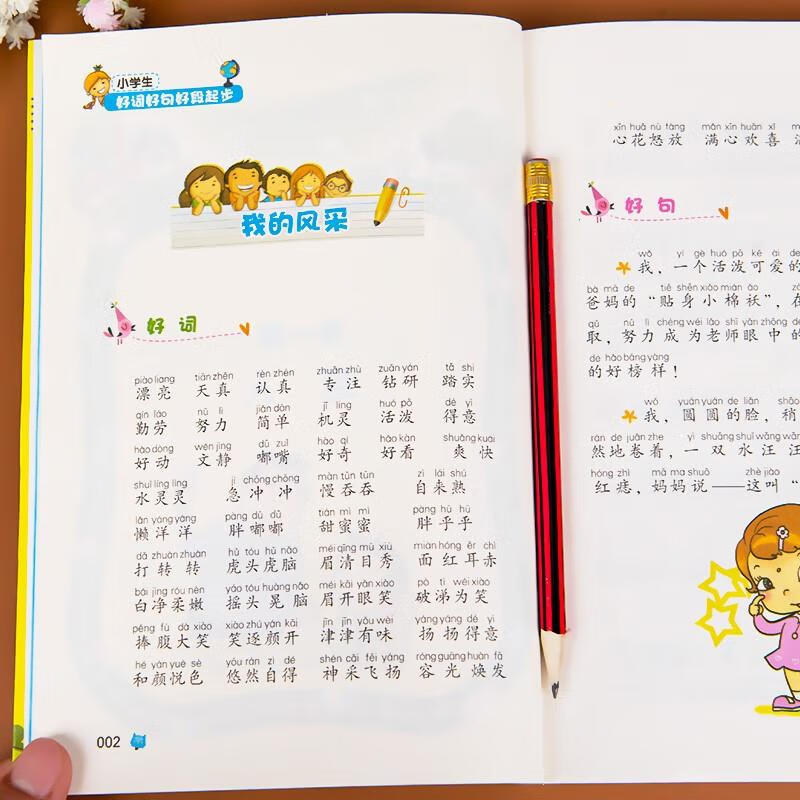 小学生
好词好句好段起步
我的风采
好词
piào liang tiān zhēn rèn zhēn zhuān zhù zuān yán tā shi
漂亮 天真 认真 专注 钻研 踏实
qín láo nǔ lì jiǎn dān jī líng huó pō dé yì
勤劳 努力 简单 机灵 活泼 得意
hào dòng wén jìng dū zuǐ hào qí hǎo kàn shuǎng kuai
好动 文静 嘟嘴 好奇 好看 爽快
shuǐ líng líng jí chōng chōng màn tūn tūn zì lái shú
水灵灵 急冲冲 慢吞吞 自来熟
lǎn yáng yáng pàng dū dū tián mì mì pàng hū hū
懒洋洋 胖嘟嘟 甜蜜蜜 胖乎乎
dǎ zhuàn zhuàn hǔ tóu hǔ nǎo méi qīng mù xiù miàn hóng ěr chì
打转转 虎头虎脑 眉清目秀 面红耳赤
bái jìng róu nèn yáo tóu huàng nǎo méi kāi yǎn xiào pò tì wéi xiào
白净柔嫩 摇头晃脑 眉开眼笑 破涕为笑
pěng fù dà xiào xiào zhú yán kāi jīn jīn yǒu wèi yáng yáng dé yì
捧腹大笑 笑逐颜开 津津有味 扬扬得意
hé yán yuè sè yōu rán zì dé shén cǎi fēi yáng róng guāng huàn fā
和颜悦色 悠然自得 神采飞扬 容光焕发
002
xīn huā nù fàng mǎn xīn huān xǐ
心花怒放 满心欢喜
好句
wǒ yí gè huó pō kě ài de
我,一个活泼可爱的
bà mā de tiē shēn xiǎo mián ǎo
爸妈的“贴身小棉袄”,在
qǔ nǔ lì chéng wéi lǎo shī yǎn zhōng de
取,努力成为老师眼中的
de hǎo bǎng yàng
的好榜样!
wǒ yuán yuán de liǎn shāo
我,圆圆的脸,稍
rán de juǎn zhe yì shuāng shuǐ wāng wāng
然地卷着,一双水汪汪
hóng zhì mā ma shuō zhè jiào
红痣,妈妈说——这叫“